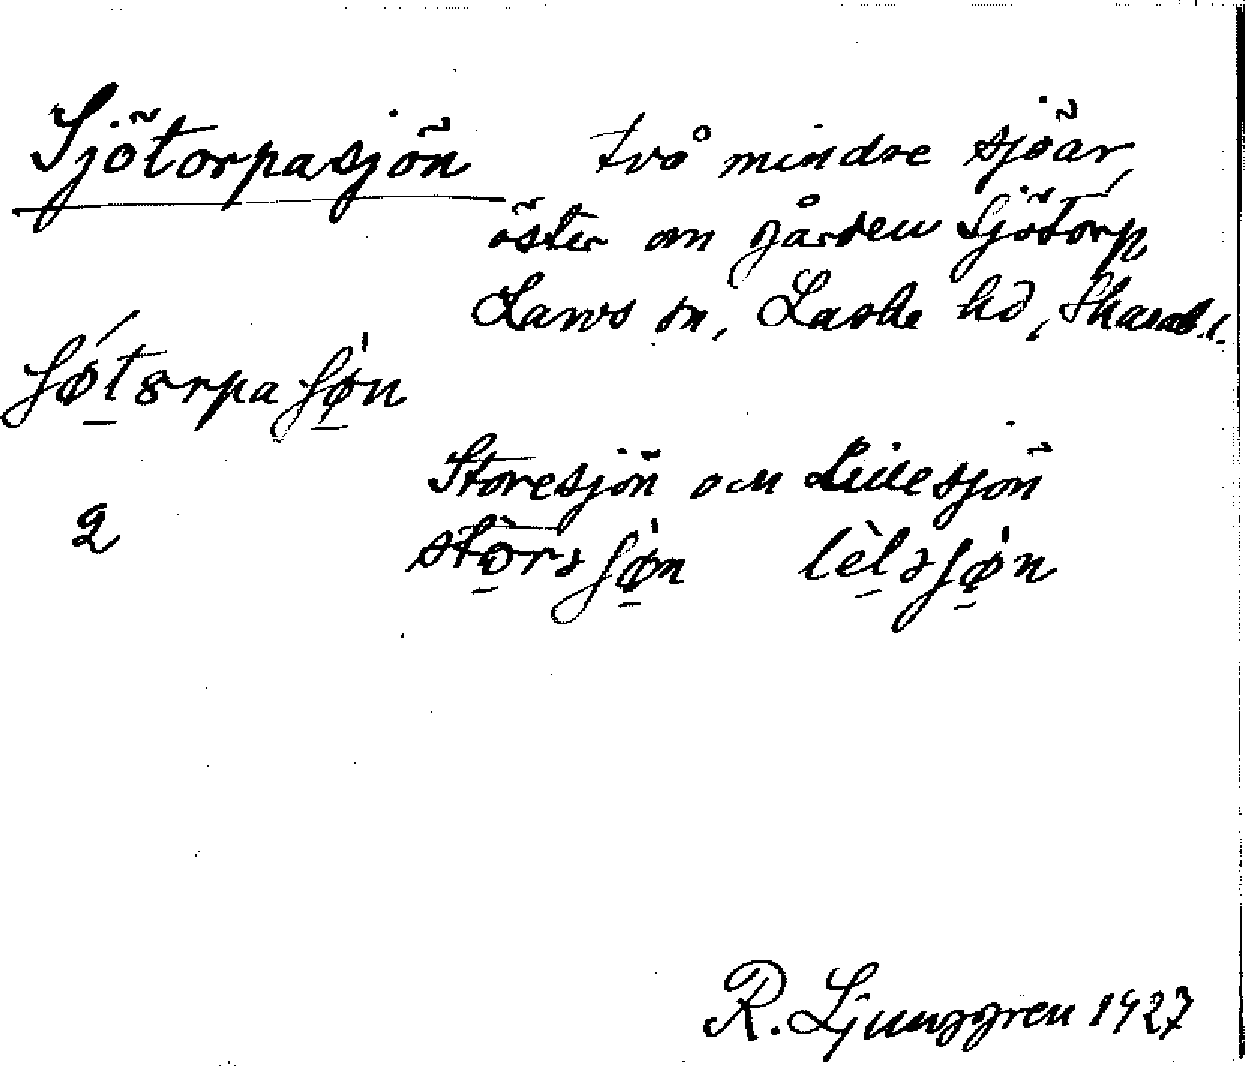 Sjötorpasjön två mindre sjöar
öster om gården Sjötorp
Larvs sn, Laske hd, Skarab.l.
ʃø̱tɞrpaʃø̱̍n
Storesjön och Lillesjön
2
stò̱rəʃø̱̍n lèl̠əʃø̱̍n
R. Ljunggren 1927